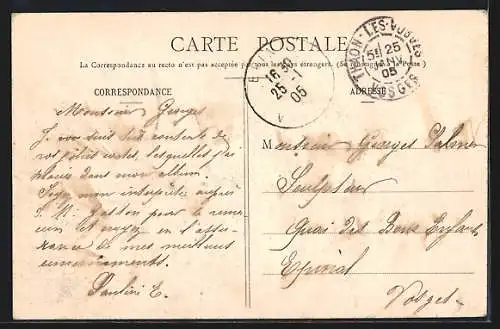 CARTE POSTALE
La Correspondance au recto n'est pas acceptée par tous les pays étrangers. (Se renseigner à la Poste)
CORRESPONDANCE
ADRESSE
16 30
25 - 1
05
THAON-LES-VOSGES
5E 25
JANV
05
VOSGES
Monsieur Georges
Je suis très contente de
vos jolies cartes, lesquelles j'ai
placées dans mon album.
Soyez mon interprète auprès
Gaston pour le remer-
cier et croyez en l'assu-
rance de mes meilleurs
remerciements.
Monsieur Georges
Sculpteur
Quai des Bons Enfants
Epinal
Vosges